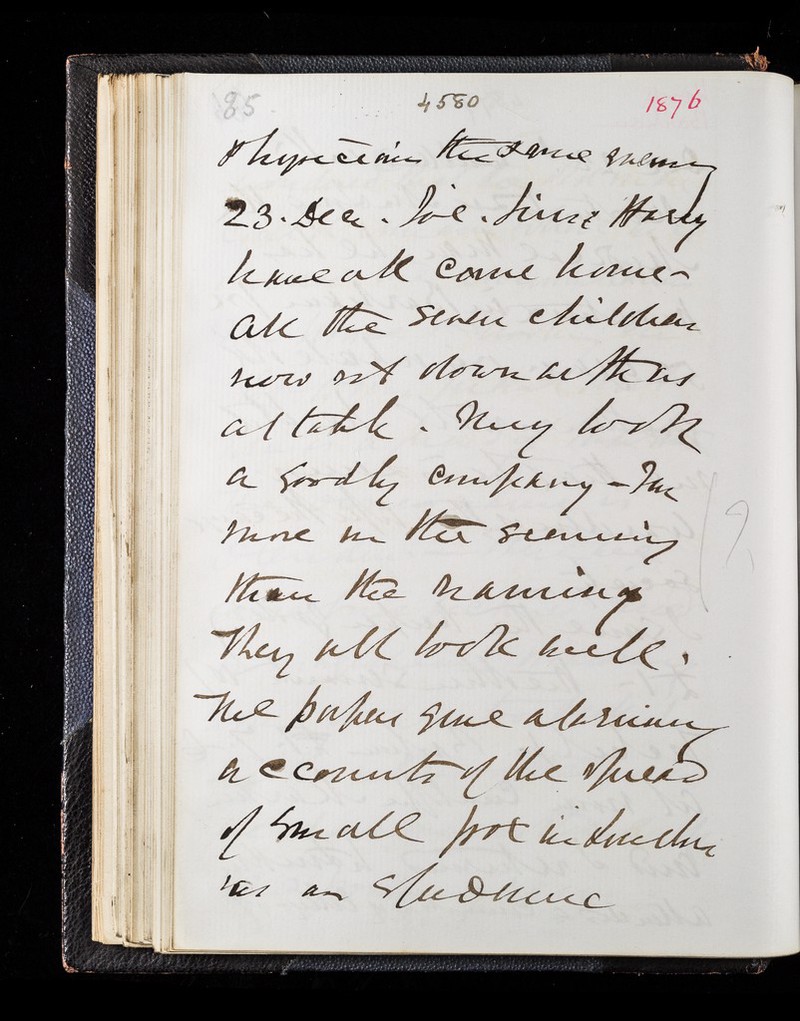 85. 4580 1876
Physicians the same evening
23. Dec. Joe. & Harry
have all come home -
all the seven children
now sit down with us
at table. They look
a goodly company -
more in the seeming
than the naming
They all look well.
The papers give alarming
accounts of the spread
of small pox in London
as an epidemic
?